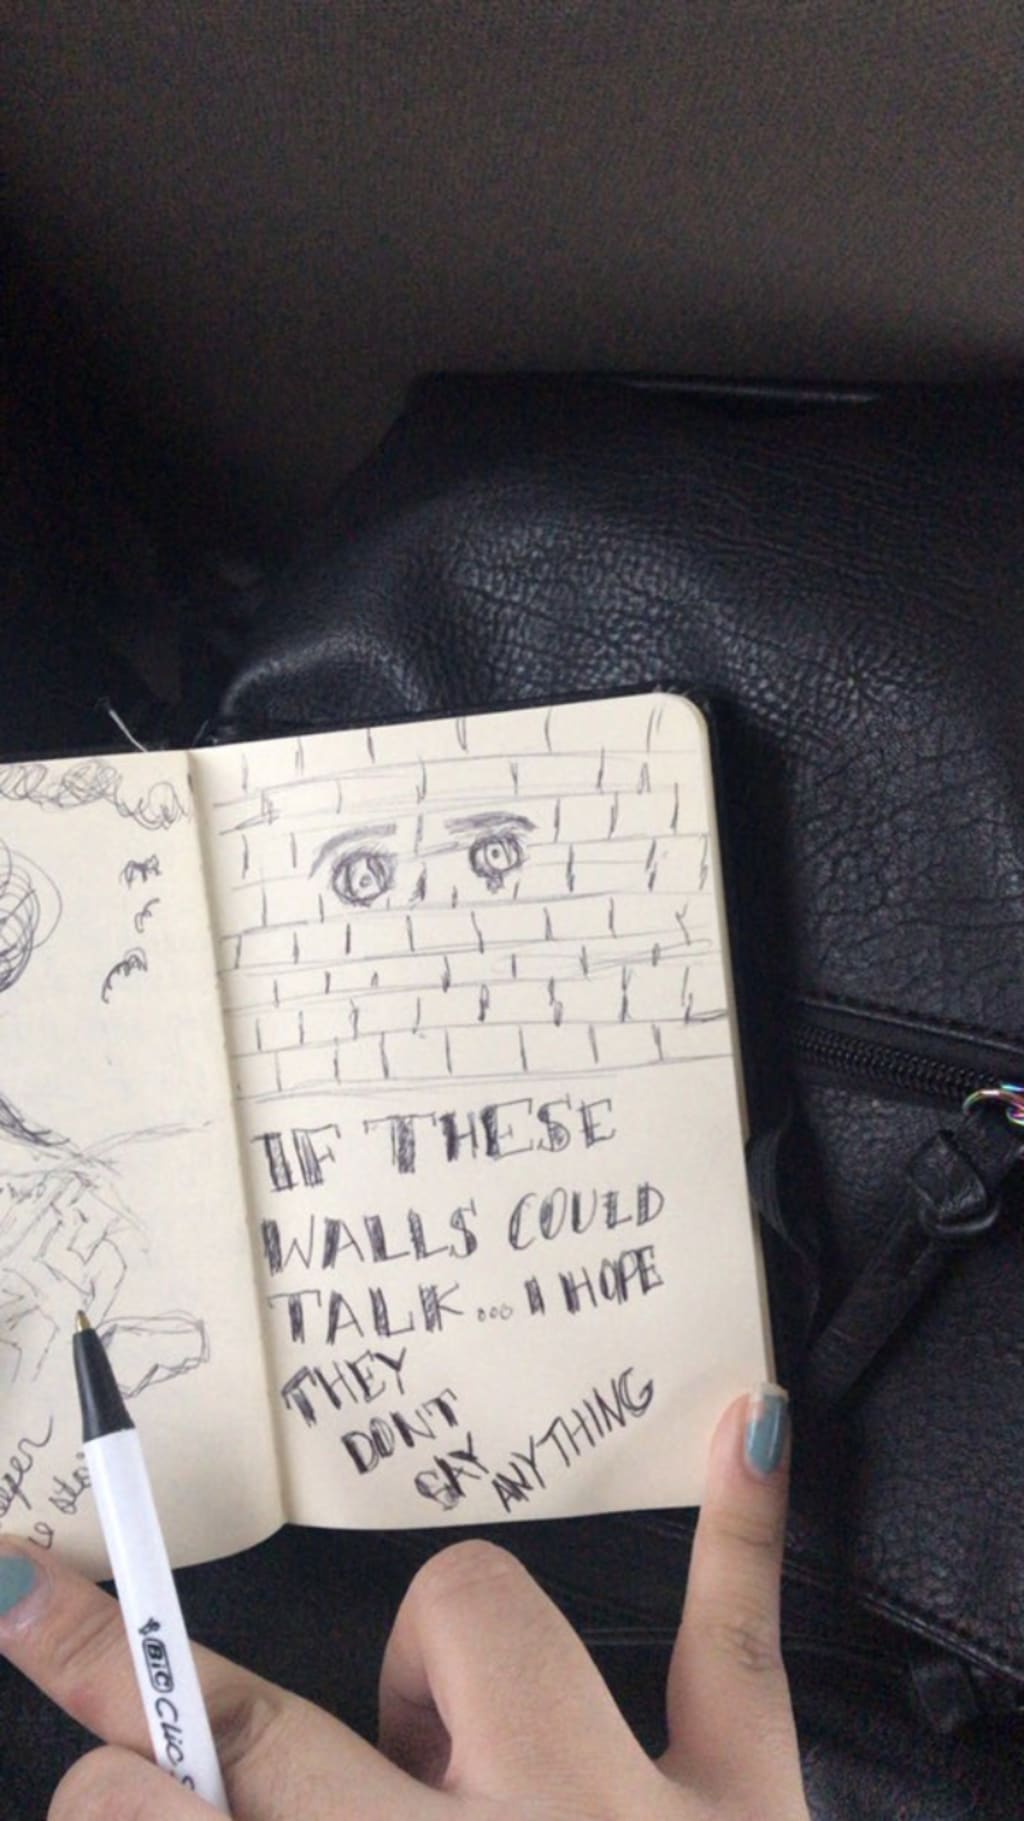 IF THESE
WALLS COULD
TALK... I HOPE
THEY
DON'T
SAY
ANYTHING
BIC Clic